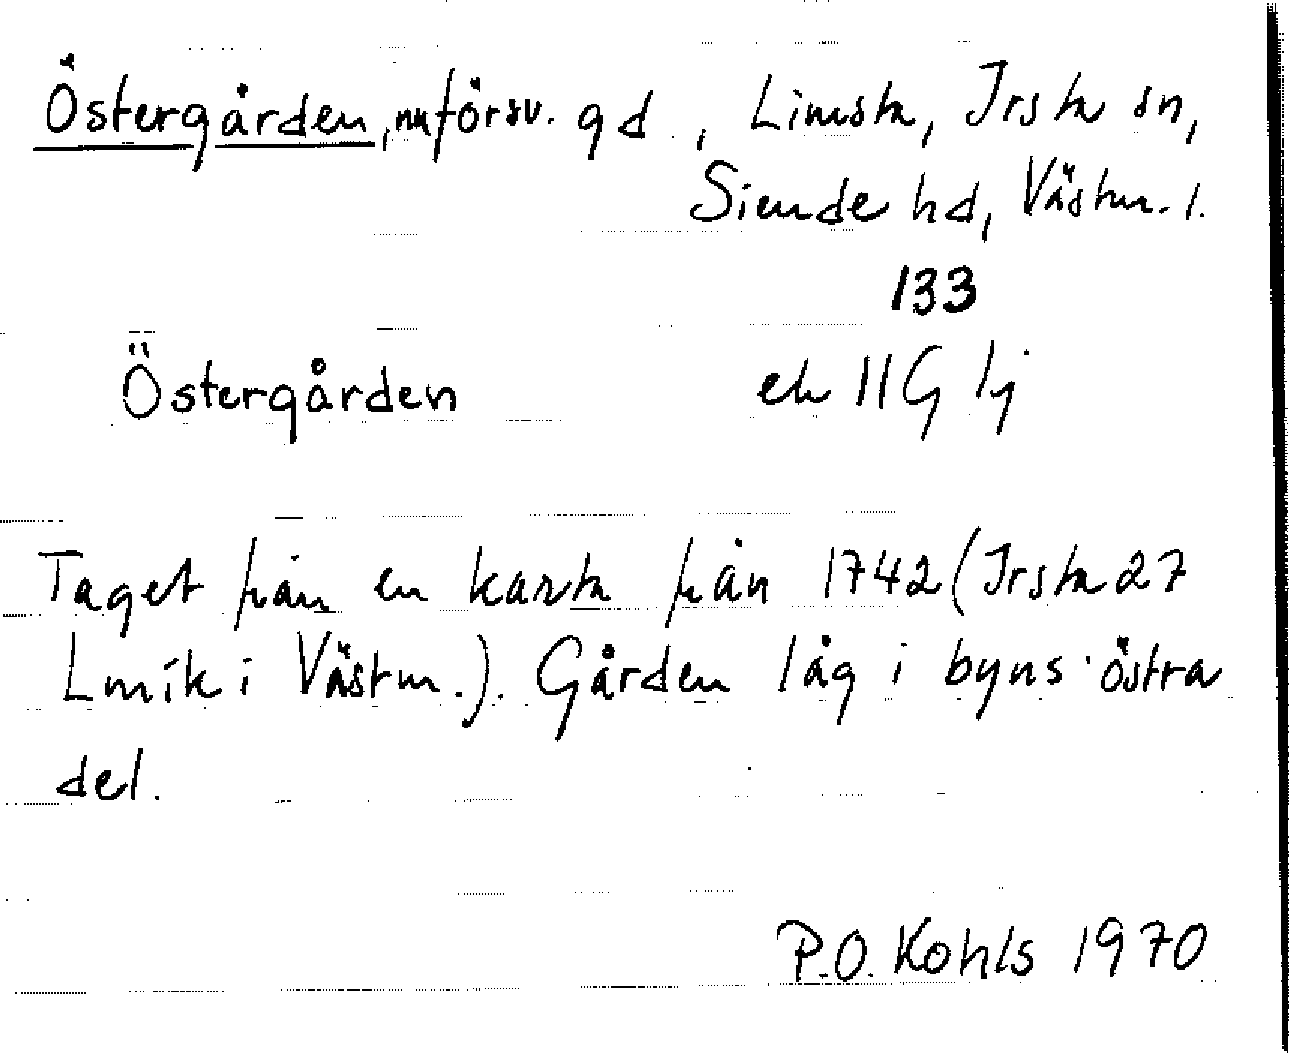 Östergården, nu försv. gd, Limsta, Irsta sn,
Siende hd, Västm. l.
133
Östergården ek 11G 1j
Taget från en karta från 1742 (Irsta 27
Lmík i Västm.). Gården låg i byns östra
del.
P.O. Kohls 1970